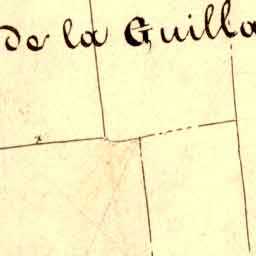 de la Guilla